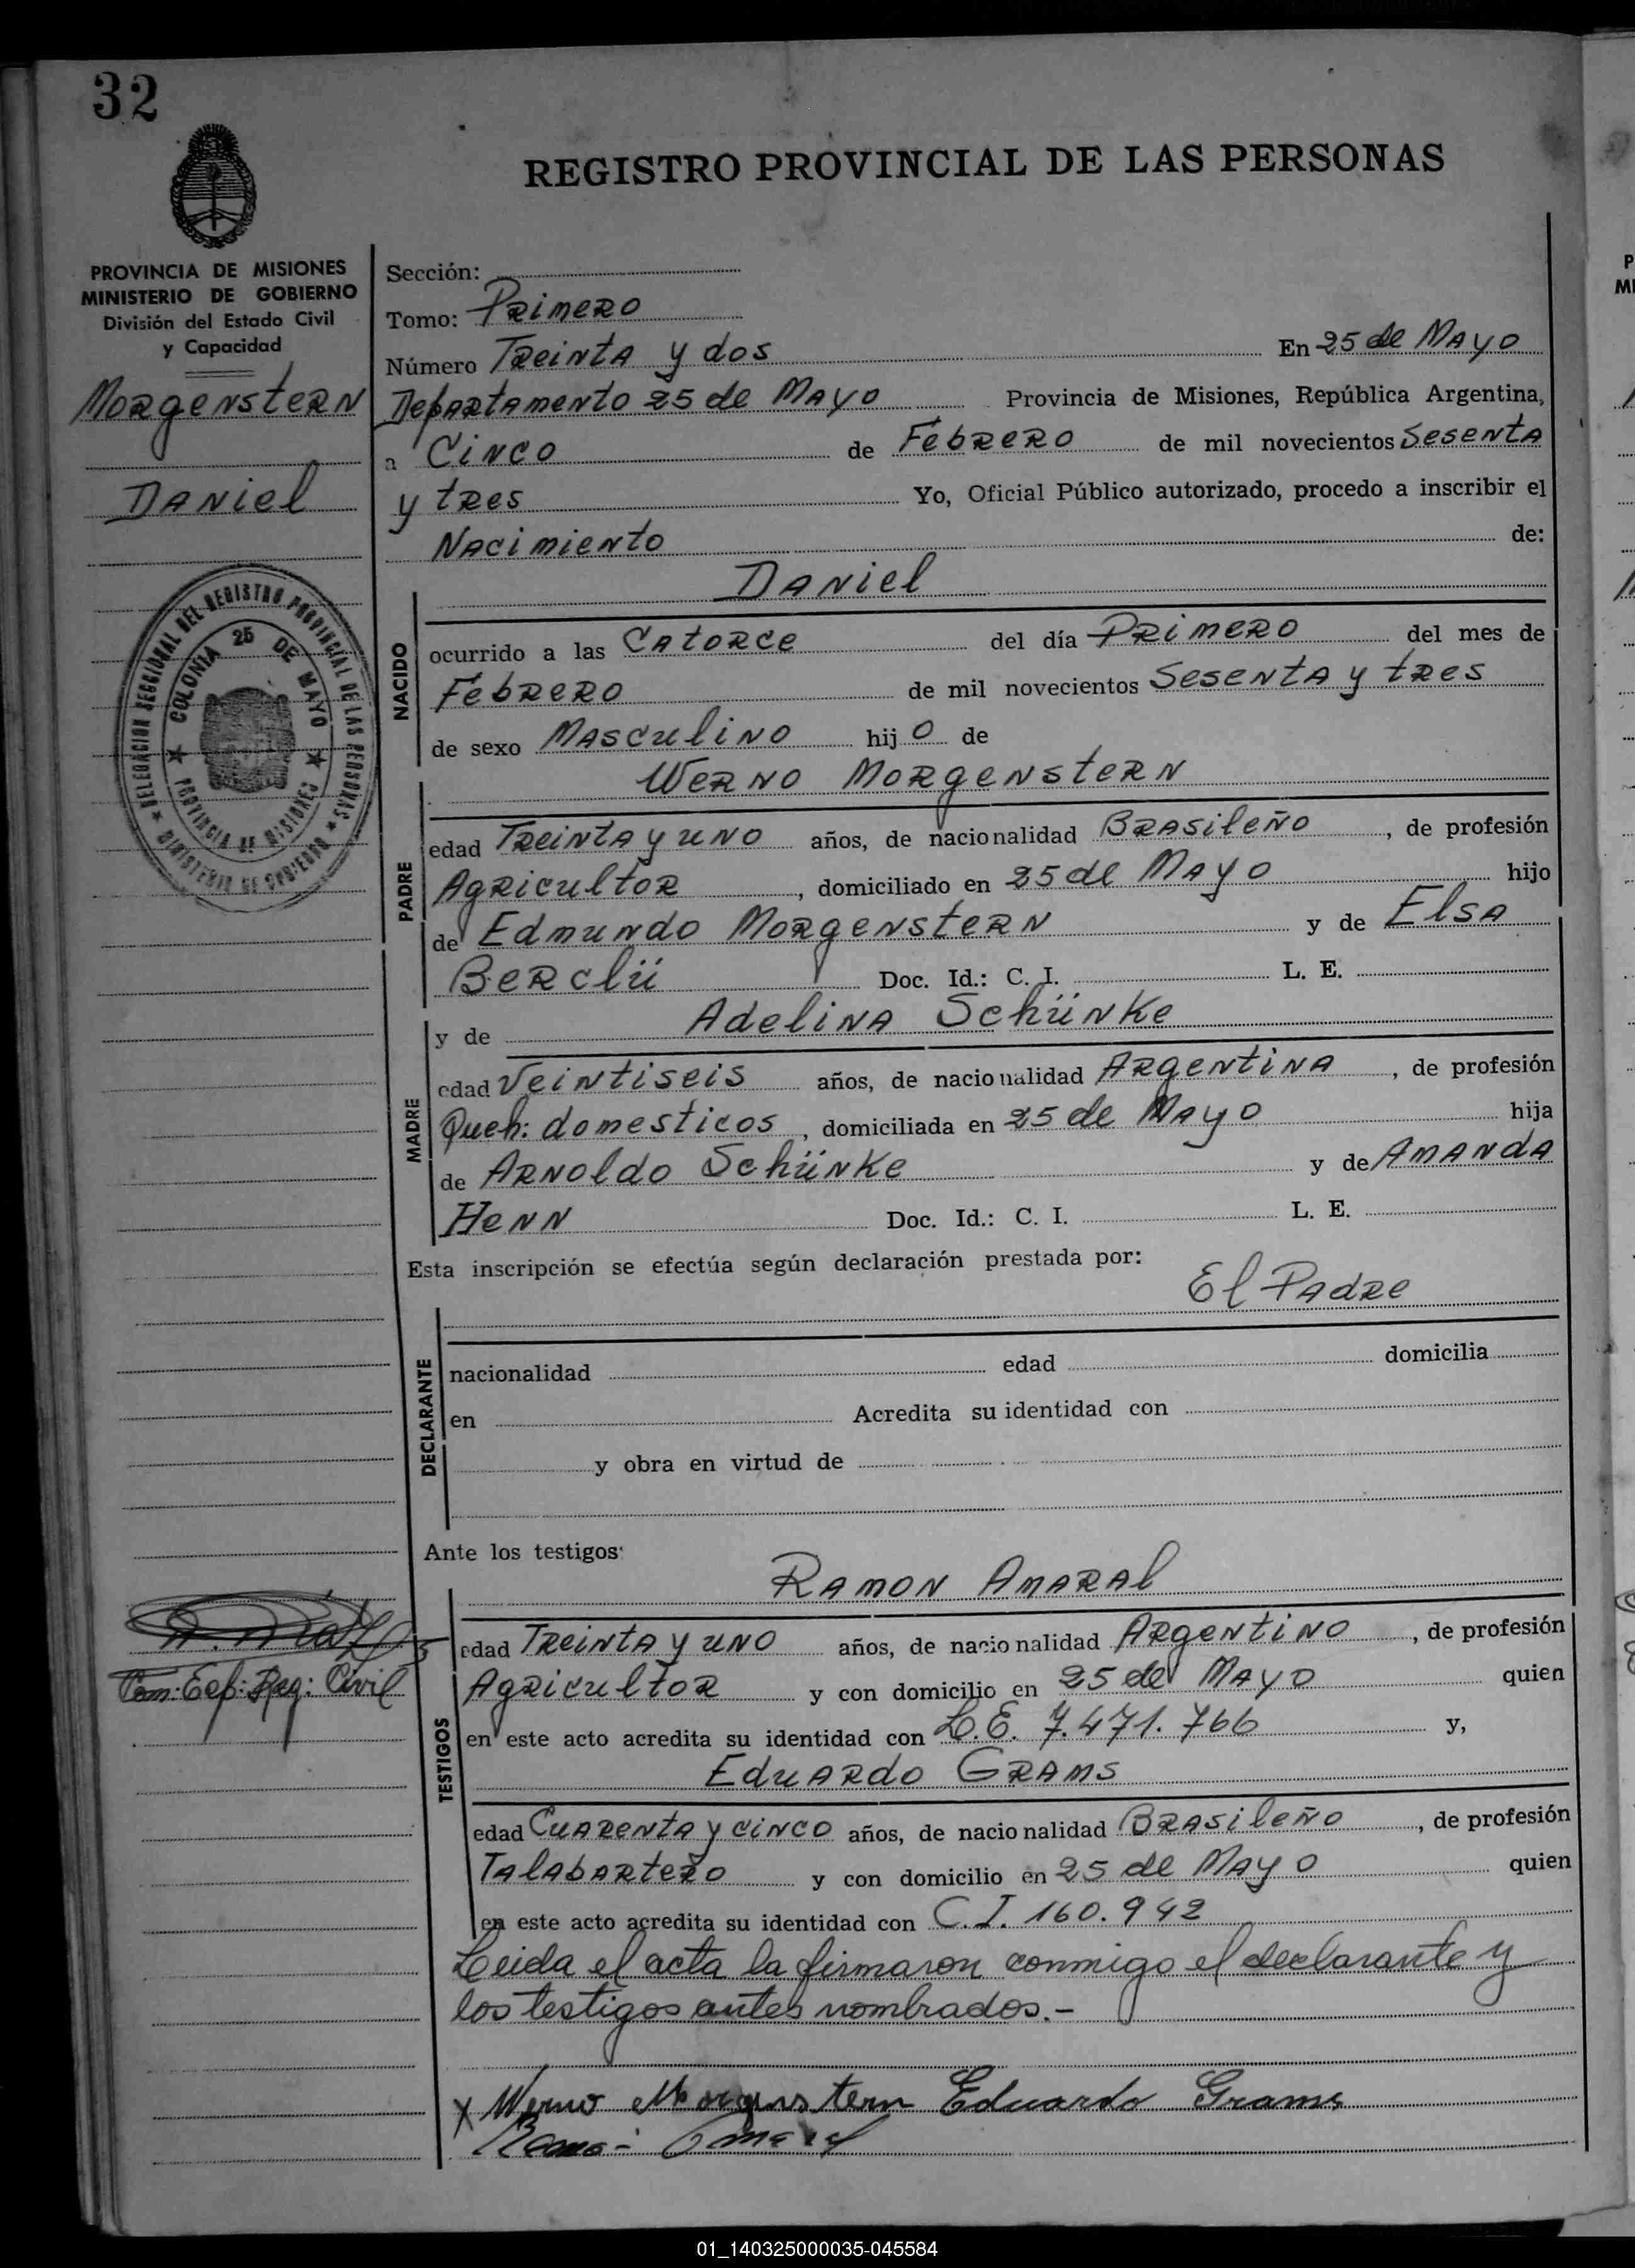 32
REGISTRO PROVINCIAL DE LAS PERSONAS
PROVINCIA DE MISIONES
MINISTERIO DE GOBIERNO
División del Estado Civil
y Capacidad
Morgenstern
Daniel
DELEGACION SECCIONAL DEL REGISTRO PROVINCIAL DE LAS PERSONAS
★ MINISTERIO DE GOBIERNO ★
COLONIA 25 DE MAYO
★ PROVINCIA DE MISIONES ★
Com: Enc. Reg: Civil
Sección:
Tomo: Primero
Número Treinta y dos En 25 de Mayo
Departamento 25 de Mayo Provincia de Misiones, República Argentina,
a Cinco de Febrero de mil novecientos Sesenta
y tres Yo, Oficial Público autorizado, procedo a inscribir el
Nacimiento de:
Daniel
NACIDO
ocurrido a las Catorce del día Primero del mes de
Febrero de mil novecientos Sesenta y tres
de sexo Masculino hijo de
Werno Morgenstern
PADRE
edad Treinta y uno años, de nacionalidad Brasileño, de profesión
Agricultor, domiciliado en 25 de Mayo hijo
de Edmundo Morgenstern y de Elsa
Berclü Doc. Id.: C. I. L. E.
y de Adelina Schünke
MADRE
edad Veintiseis años, de nacionalidad Argentina, de profesión
Queh: domesticos, domiciliada en 25 de Mayo hija
de Arnoldo Schünke y de Amanda
Henn Doc. Id.: C. I. L. E.
Esta inscripción se efectúa según declaración prestada por:
El Padre
DECLARANTE
nacionalidad edad domicilia
en Acredita su identidad con
y obra en virtud de
Ante los testigos:
Ramon Amaral
TESTIGOS
edad Treinta y uno años, de nacionalidad Argentino, de profesión
Agricultor y con domicilio en 25 de Mayo quien
en este acto acredita su identidad con L.E. 7.471.766 y,
Eduardo Grams
edad Cuarenta y cinco años, de nacionalidad Brasileño, de profesión
Talabartero y con domicilio en 25 de Mayo quien
en este acto acredita su identidad con C.I. 160.942
Leida el acta la firmaron conmigo el declarante y
los testigos antes nombrados.-
x Werno Morgenstern Eduardo Grams
Ramon Amaral
01_140325000035-045584